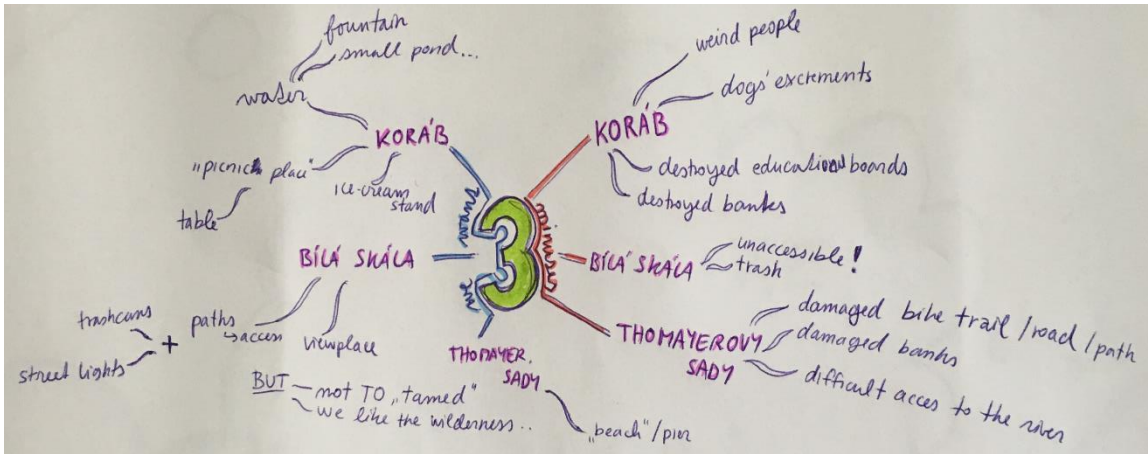 fountain
small pond...
water
KORÁB
"picnick place"
ice-cream
stand
table
BÍLÁ SKÁLA
trashcans
street lights
+
paths
↳access
viewplace
BUT
not TO „tamed"
we like the wilderness..
THOMAYER.
SADY
„beach"/pier
3
minuses
weird people
dogs' excrements
KORÁB
destroyed educational boards
destroyed banks
BÍLÁ SKÁLA
unaccessible!
trash
THOMAYEROVY
SADY
damaged bike trail/road/path
damaged banks
difficult acces to the river